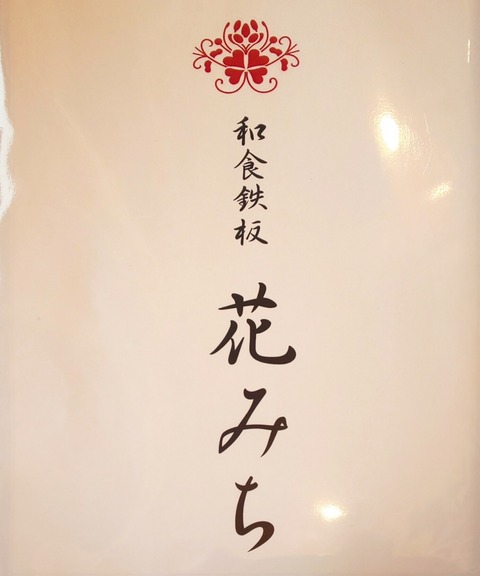 和食鉄板
花みち